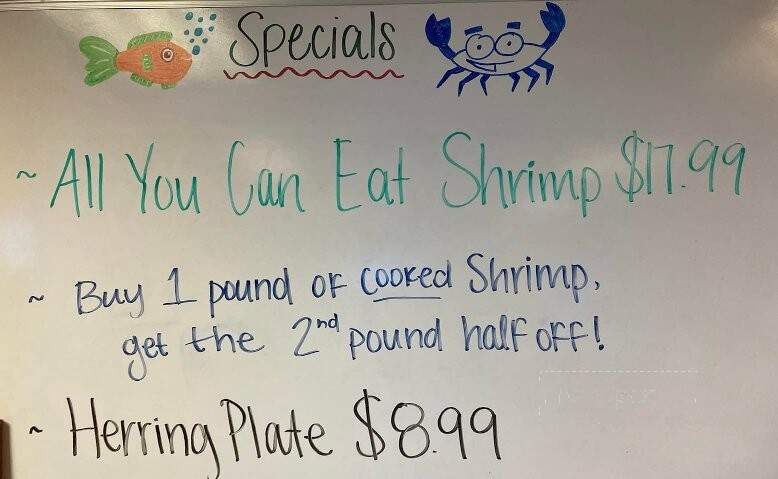 Specials
~ All You Can Eat Shrimp $17.99
~ Buy 1 pound of cooked Shrimp,
get the 2nd pound half off!
~ Herring Plate $8.99